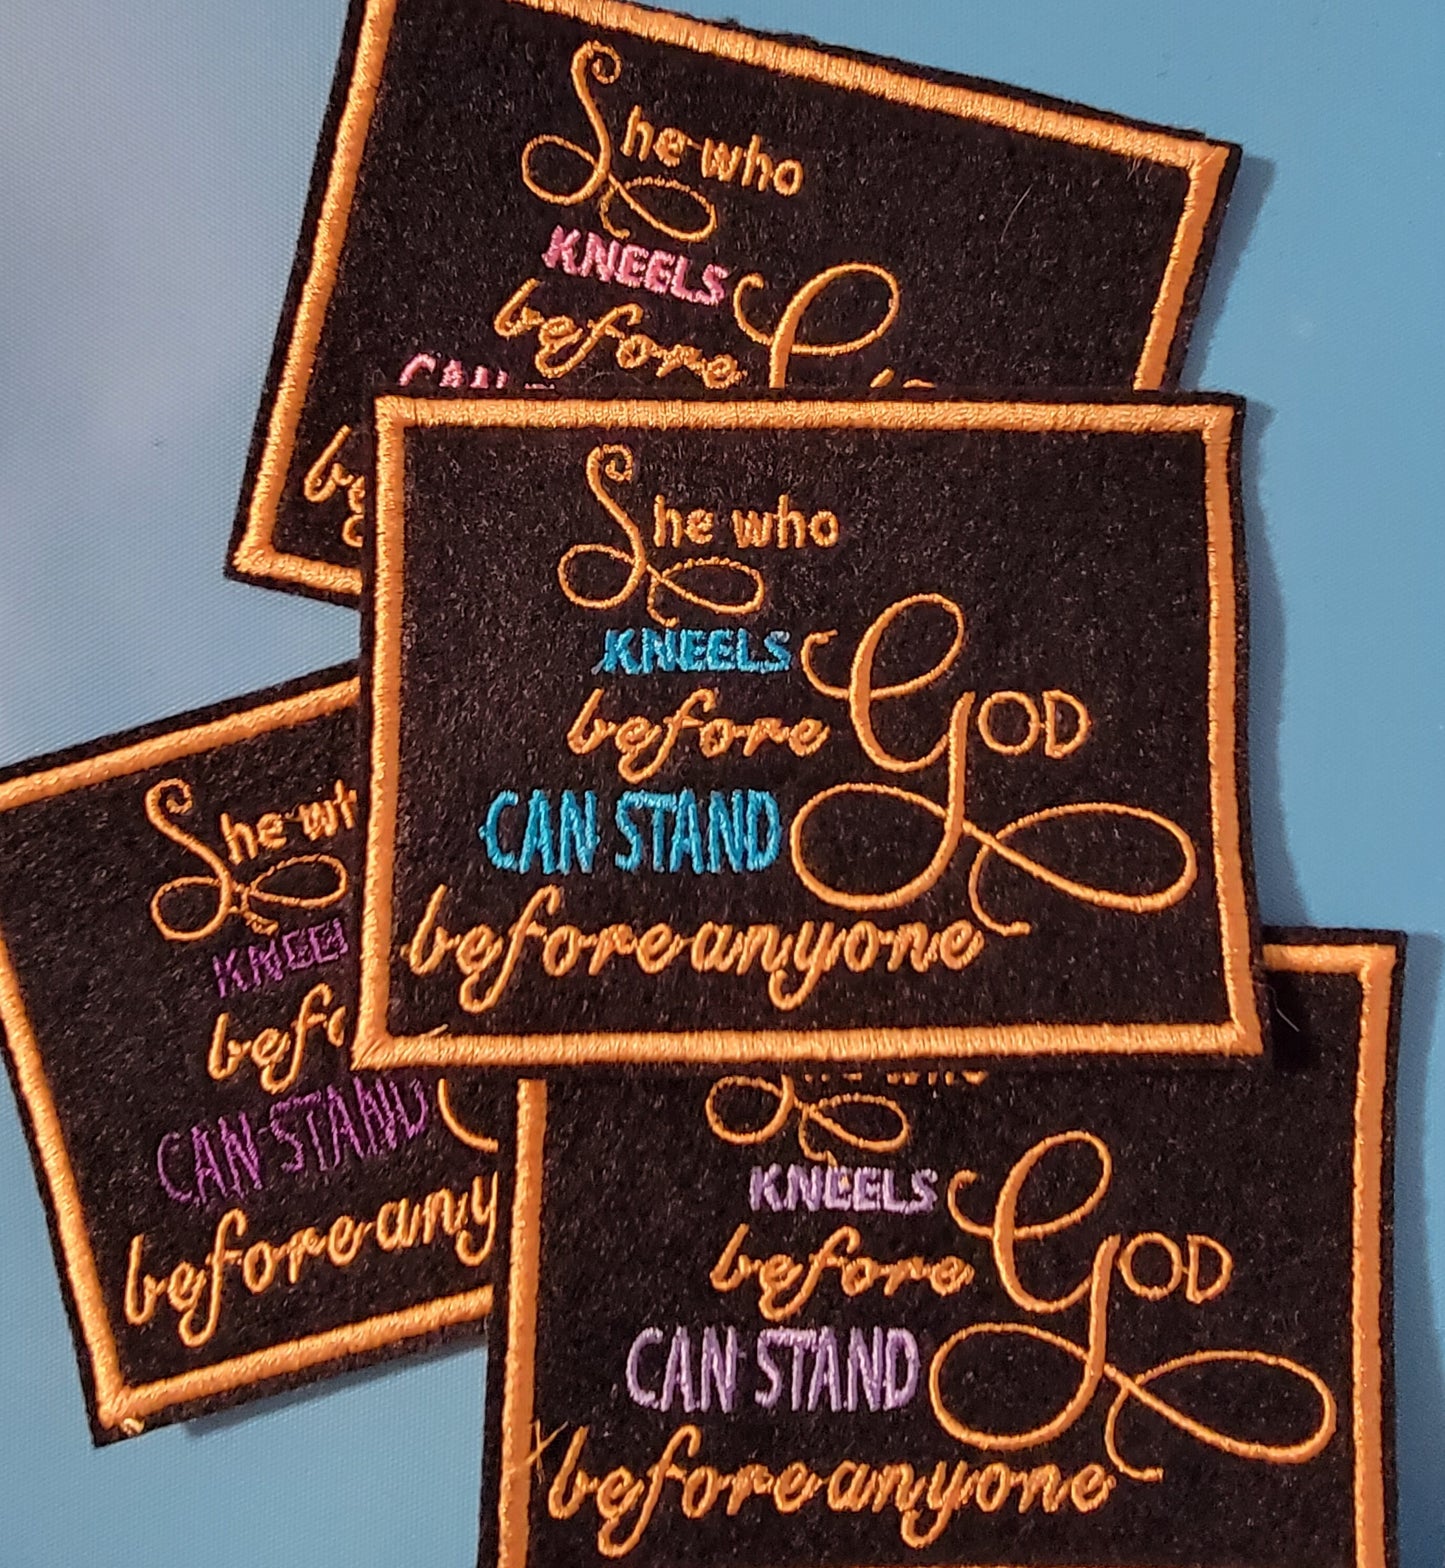 She who
KNEELS
before
CAN
She who
KNEELS
before GOD
CAN STAND
before anyone
She wh
KNEEL
befo
CAN STAND
before any
KNEELS
before GOD
CAN STAND
before anyone